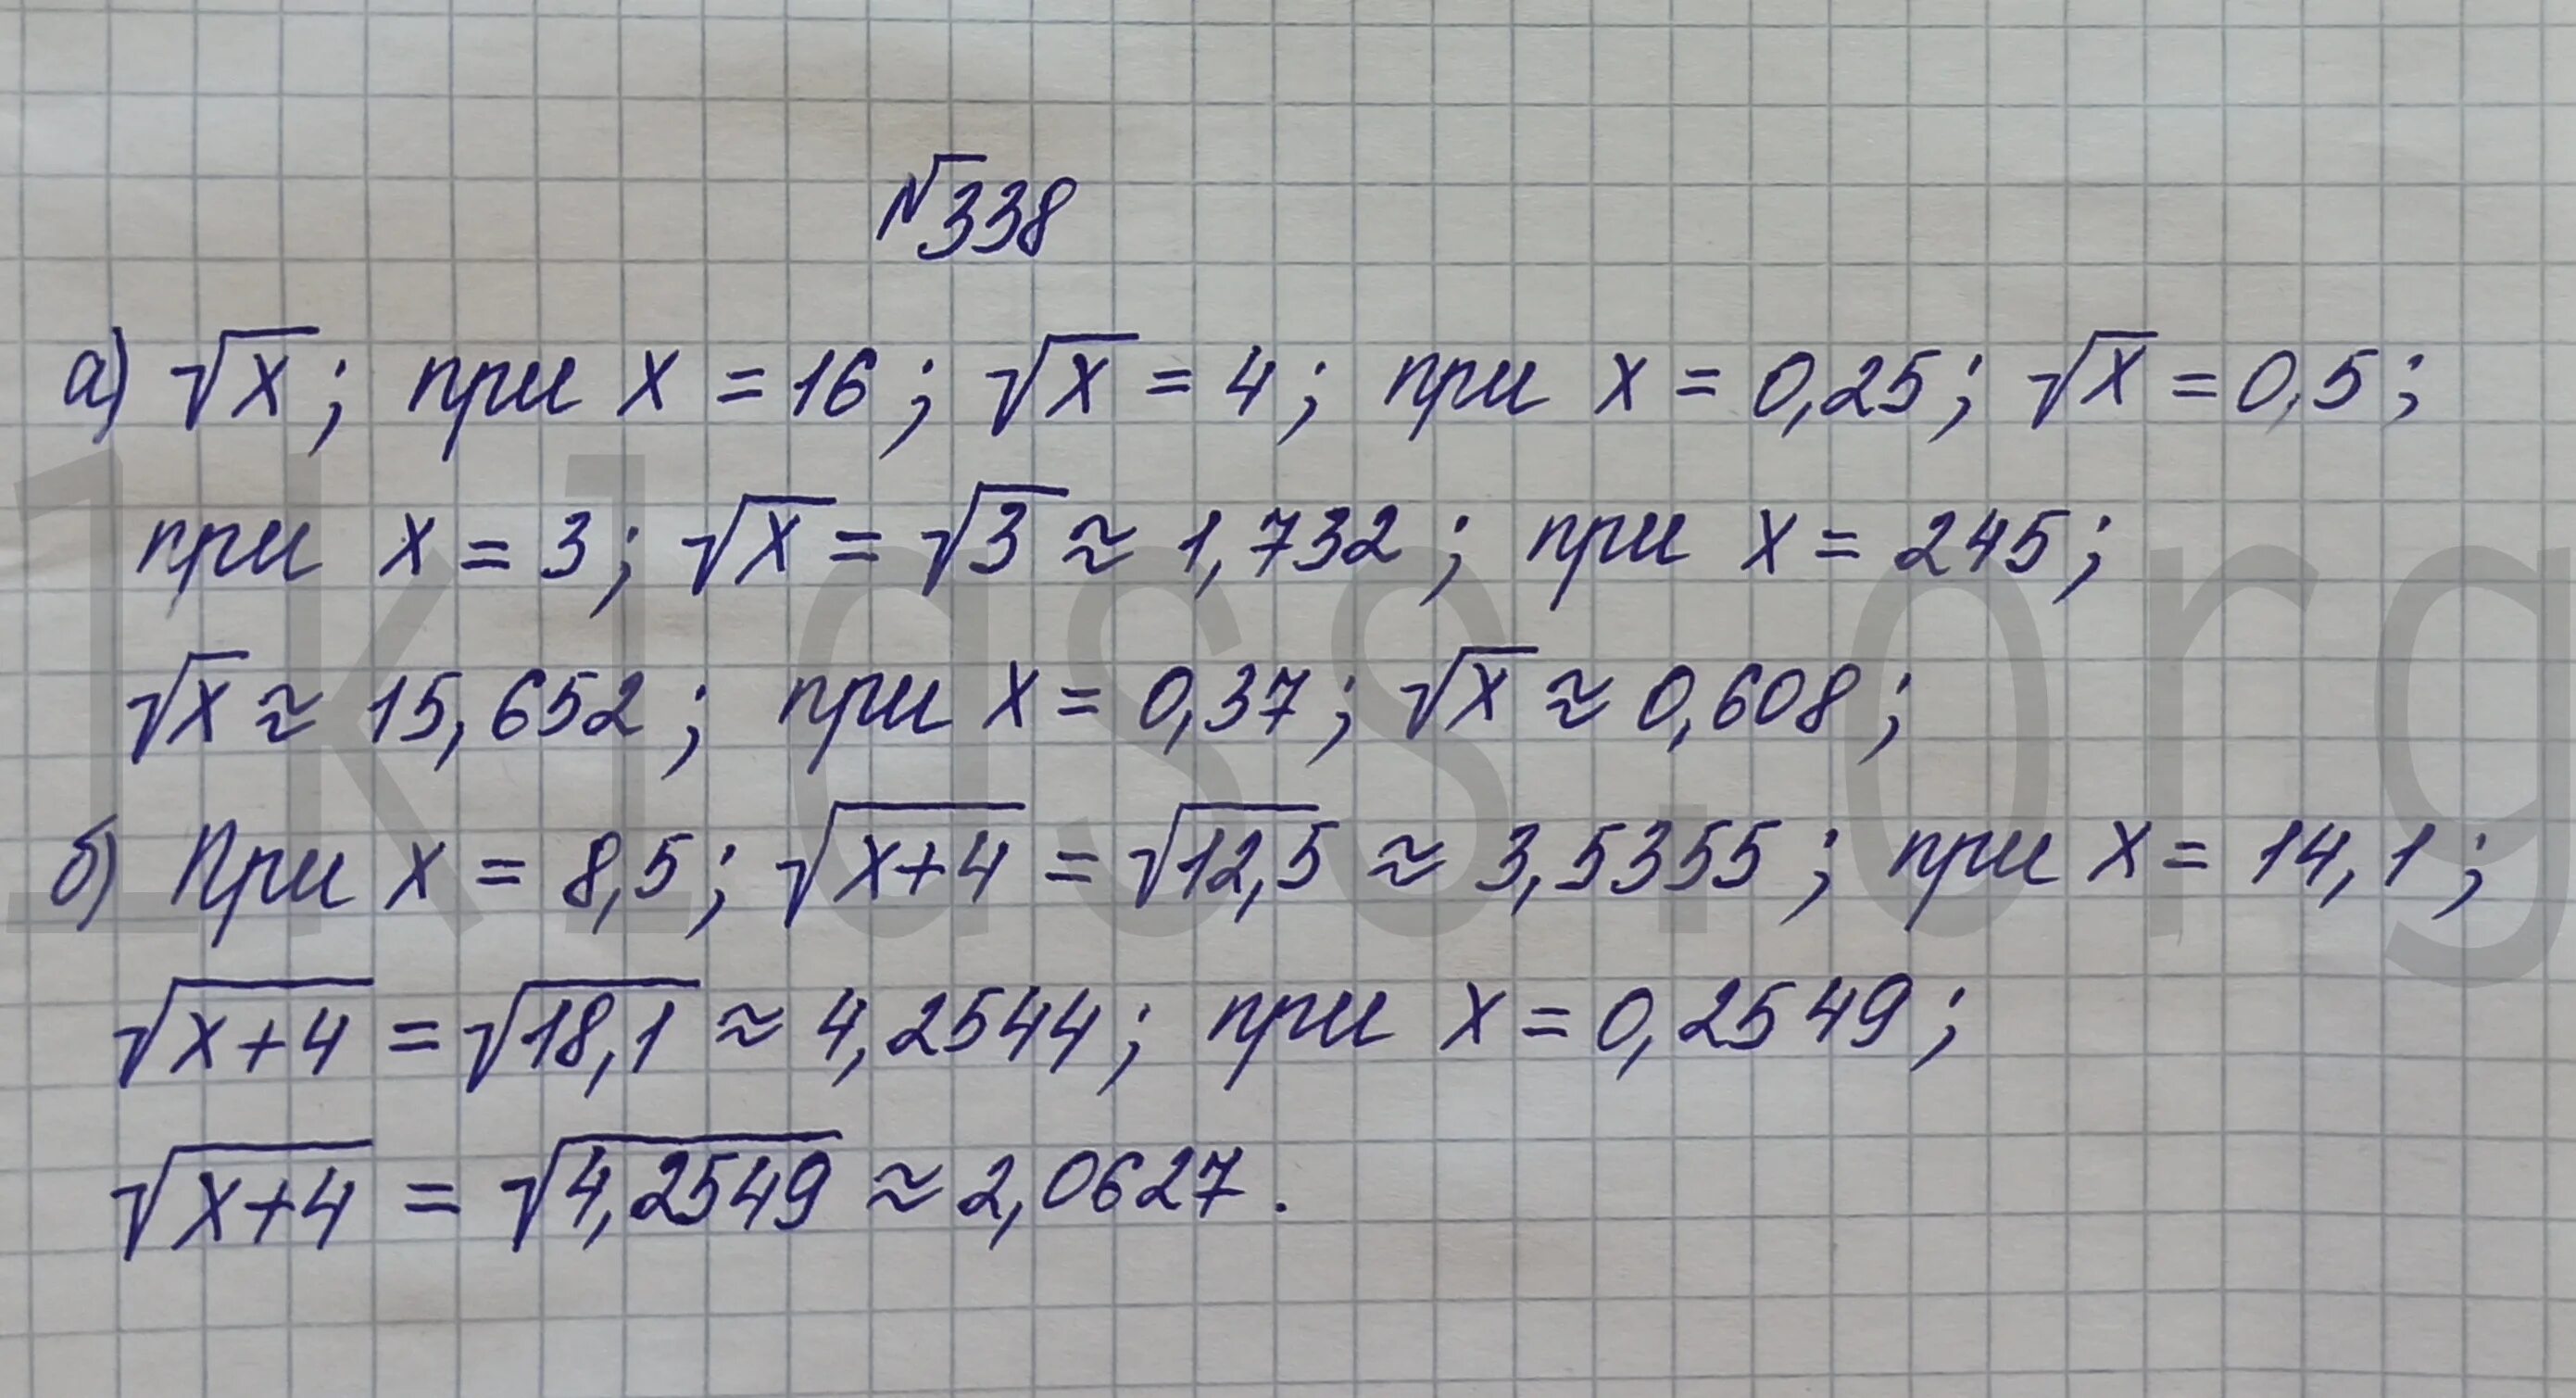 №338
а) √x; при x = 16; √x = 4; при x = 0,25; √x = 0,5;
при x = 3; √x = √3 ≈ 1,732; при x = 245;
√x ≈ 15,652; при x = 0,37; √x ≈ 0,608;
б) При x = 8,5; √(x+4) = √12,5 ≈ 3,5355; при x = 14,1;
√(x+4) = √18,1 ≈ 4,2544; при x = 0,2549;
√(x+4) = √4,2549 ≈ 2,0627.
1klass.org